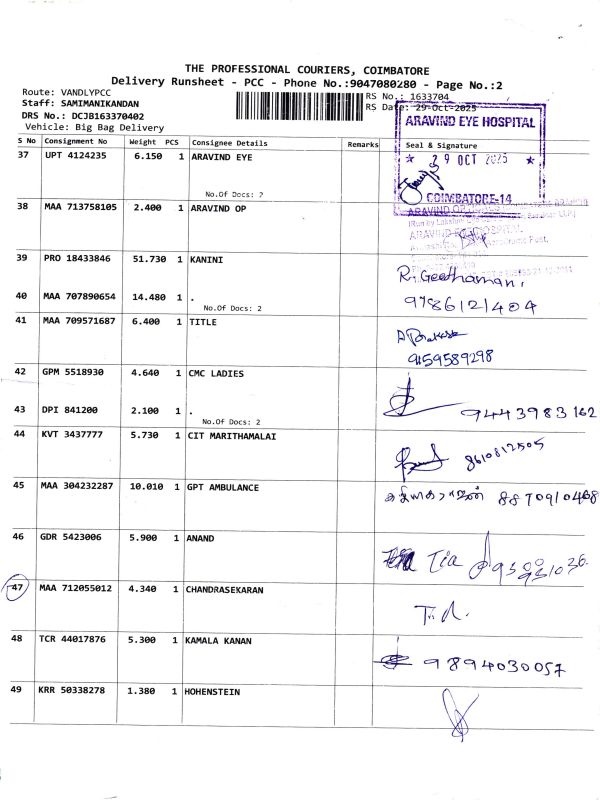 THE PROFESSIONAL COURIERS, COIMBATORE
Delivery Runsheet - PCC - Phone No.:9047080280 - Page No.:2
Route: VANDLYPCC
RS No.: 1633704
Staff: SAMIMANIKANDAN
RS Date: 29-Oct-2025
DRS No.: DCJB163370402
Vehicle: Big Bag Delivery
ARAVIND EYE HOSPITAL
S No Consignment No Weight PCS Consignee Details Remarks Seal & Signature
37 UPT 4124235 6.150 1 ARAVIND EYE
* 29 OCT 2025 *
No.Of Docs: 2
COIMBATORE-14
38 MAA 713758105 2.400 1 ARAVIND OP
39 PRO 18433846 51.730 1 KANINI
R. Geethamani,
40 MAA 707890654 14.480 1 .
9786121404
No.Of Docs: 2
41 MAA 709571687 6.400 1 TITLE
9159589298
42 GPM 5518930 4.640 1 CMC LADIES
43 DPI 841200 2.100 1 .
9443983162
No.Of Docs: 2
44 KVT 3437777 5.730 1 CIT MARITHAMALAI
8610812505
45 MAA 304232287 10.010 1 GPT AMBULANCE
46 GDR 5423006 5.900 1 ANAND
Tia
47 MAA 712055012 4.340 1 CHANDRASEKARAN
48 TCR 44017876 5.300 1 KAMALA KANAN
9894030057
49 KRR 50338278 1.380 1 HOHENSTEIN